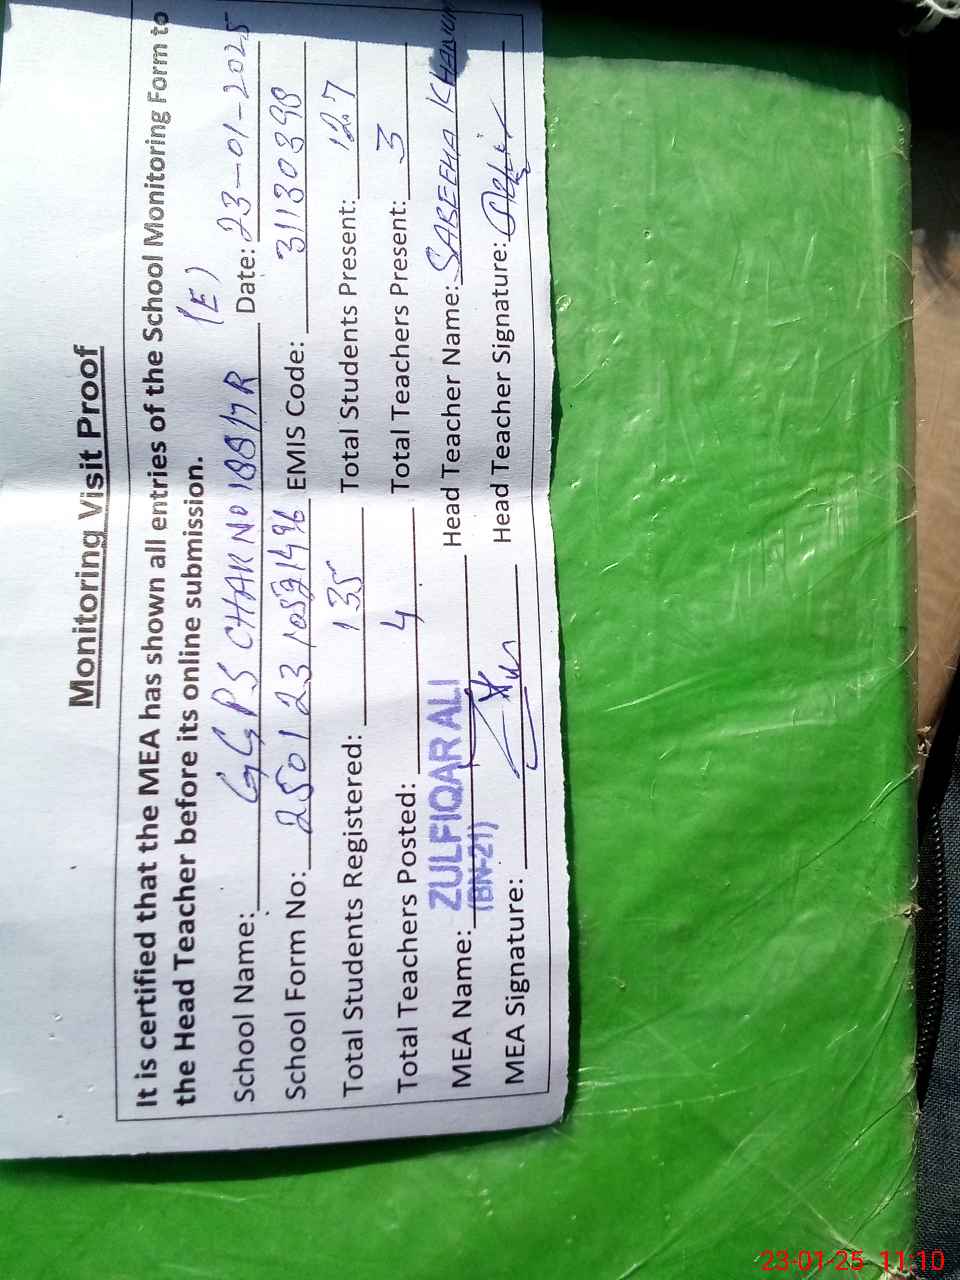 Monitoring Visit Proof
It is certified that the MEA has shown all entries of the School Monitoring Form to
the Head Teacher before its online submission. (E)
School Name: GGPS CHAK NO 188/7R Date: 23-01-2025
School Form No: 250123 EMIS Code: 31130398
Total Students Registered: 135 Total Students Present: 127
Total Teachers Posted: 4 Total Teachers Present: 3
MEA Name: ZULFIQAR ALI Head Teacher Name: SABEEHA KHANUM
(BN-21)
MEA Signature: Head Teacher Signature:
23-01-25 11:10